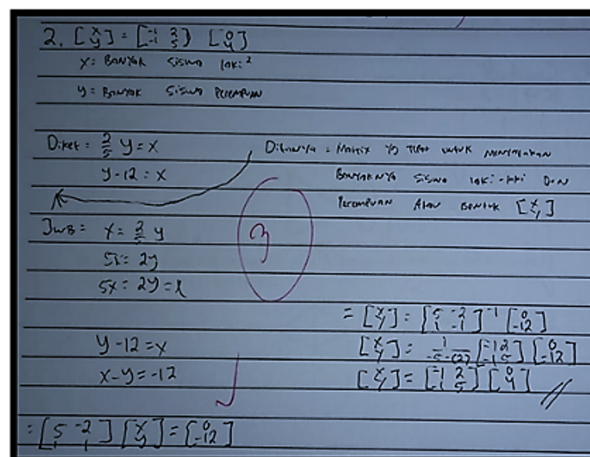 2. [x y] = [-1 2 -1 5] [0 4]
x = BANYAK SISWA laki²
y = BANYAK SISWA PEREMPUAN
Diket = 2/5 y = x
y - 12 = x
Ditanya = Matrix yg tepat untuk menyatakan
Banyaknya siswa laki-laki dan
perempuan adalah bentuk [x y]
Jwb = x = 2/5 y
5x = 2y
3
y - 12 = x
x - y = -12
= [x y] = [5 -2 1 -1]⁻¹ [0 -12]
[x y] = 1/-5-(-2) [-1 2 -1 5] [0 -12]
[x y] = [-1 2 -1 5] [0 4] //
= [5 -2 1 -1] [x y] = [0 -12]